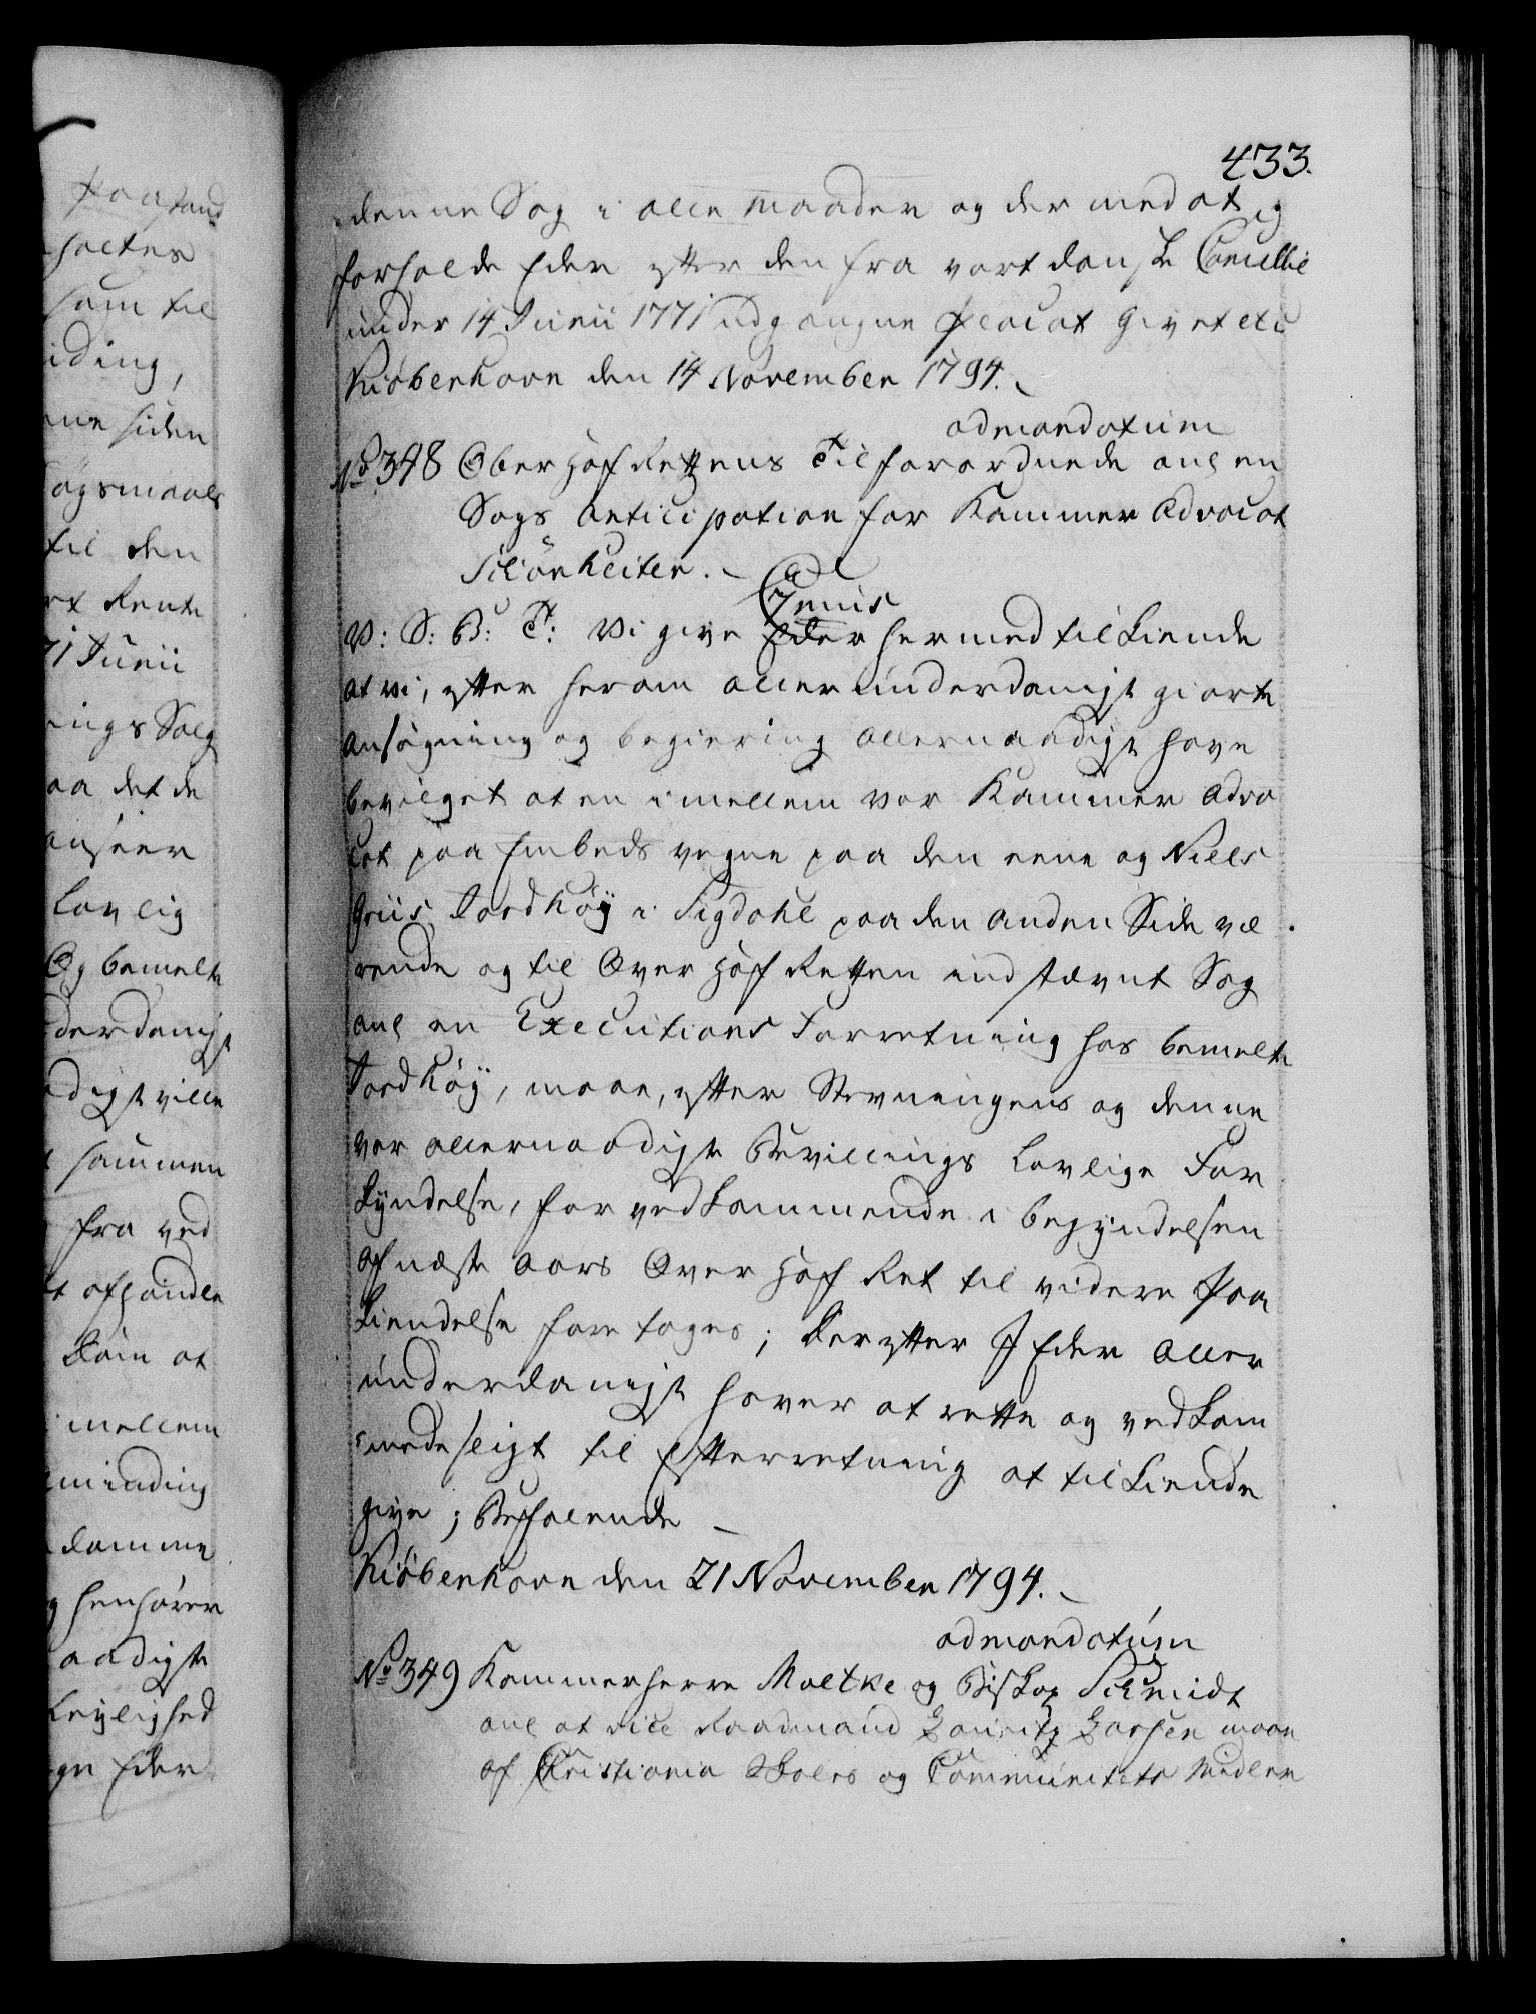 433.
denne Sag i alle Maader og der med at
forholde Eder efter den fra vort danske Cancellie
under 14 Junii 1771 udgangne Placat Givet etc
Kiøbenhavn den 14 November 1794.
admandatum
No 348 Ober Hof Rettens Tilforordnede anl en
Sags Anticipation for Kammer Advocat
Schönheiter.
Genus
V: S: B: T: Vi give Eder hermed tilkiende
at vi, efter herom allerunderdanigst giorte
Ansøgning og begiering allernaadigst have
bevilget at en imellem vor Kammer Advo
cat paa Embeds vegne paa den eene og Niels
Griis Jordhøy i Sigdahl paa den anden Side væ
rende og til Over Hof Retten indstævnt Sag
anl en Executions Forretning hos bemelte
Jordhøy, maae, efter Stevningens og denne
vor allernaadigste Bevillings Lovlige For
kyndelse, for vedkommende i begyndelsen
af næste Aars Over Hof Ret til videre Paa
kiendelse foretages; Derefter I Eder aller
underdanigst haver at rette og vedkom
mede sligt til Efterretning at tilkiende
give; Befalende
Kiøbenhavn den 21 November 1794.
admandatum
No 349 Kammerherre Moltke og Biskop Schmidt
anl at vice Raadmand Lauritz Larsen maae
af Christiania Skoles og Communitets Midler
paastand
til
Som til
iding,
siden
øgsmaals
til den
Rente
71 Junii
ings Salg
det de
anseer
Lovlig
Og bemelte
derdanigst
digst ville
sammen
fra ved
at
imellem
minding
domme
henhører
aadigste
Leylighed
Eder